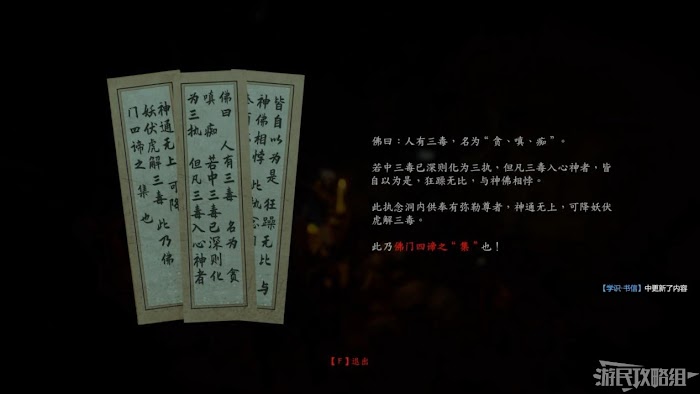 皆自以为是 狂躁无比 与
神佛相悖 此执念
佛曰 人有三毒 名为 贪
嗔 痴 若中三毒已深则化
为三执 但凡三毒入心神者
神通无上 可降
妖伏虎解三毒 此乃佛
门四谛之 集 也
佛曰：人有三毒，名为“贪、嗔、痴”。
若中三毒已深则化为三执，但凡三毒入心神者，皆
自以为是，狂躁无比，与神佛相悖。
此执念洞内供奉有弥勒尊者，神通无上，可降妖伏
虎解三毒。
此乃佛门四谛之“集”也！
【学识-书信】中更新了内容
【F】退出
游民攻略组